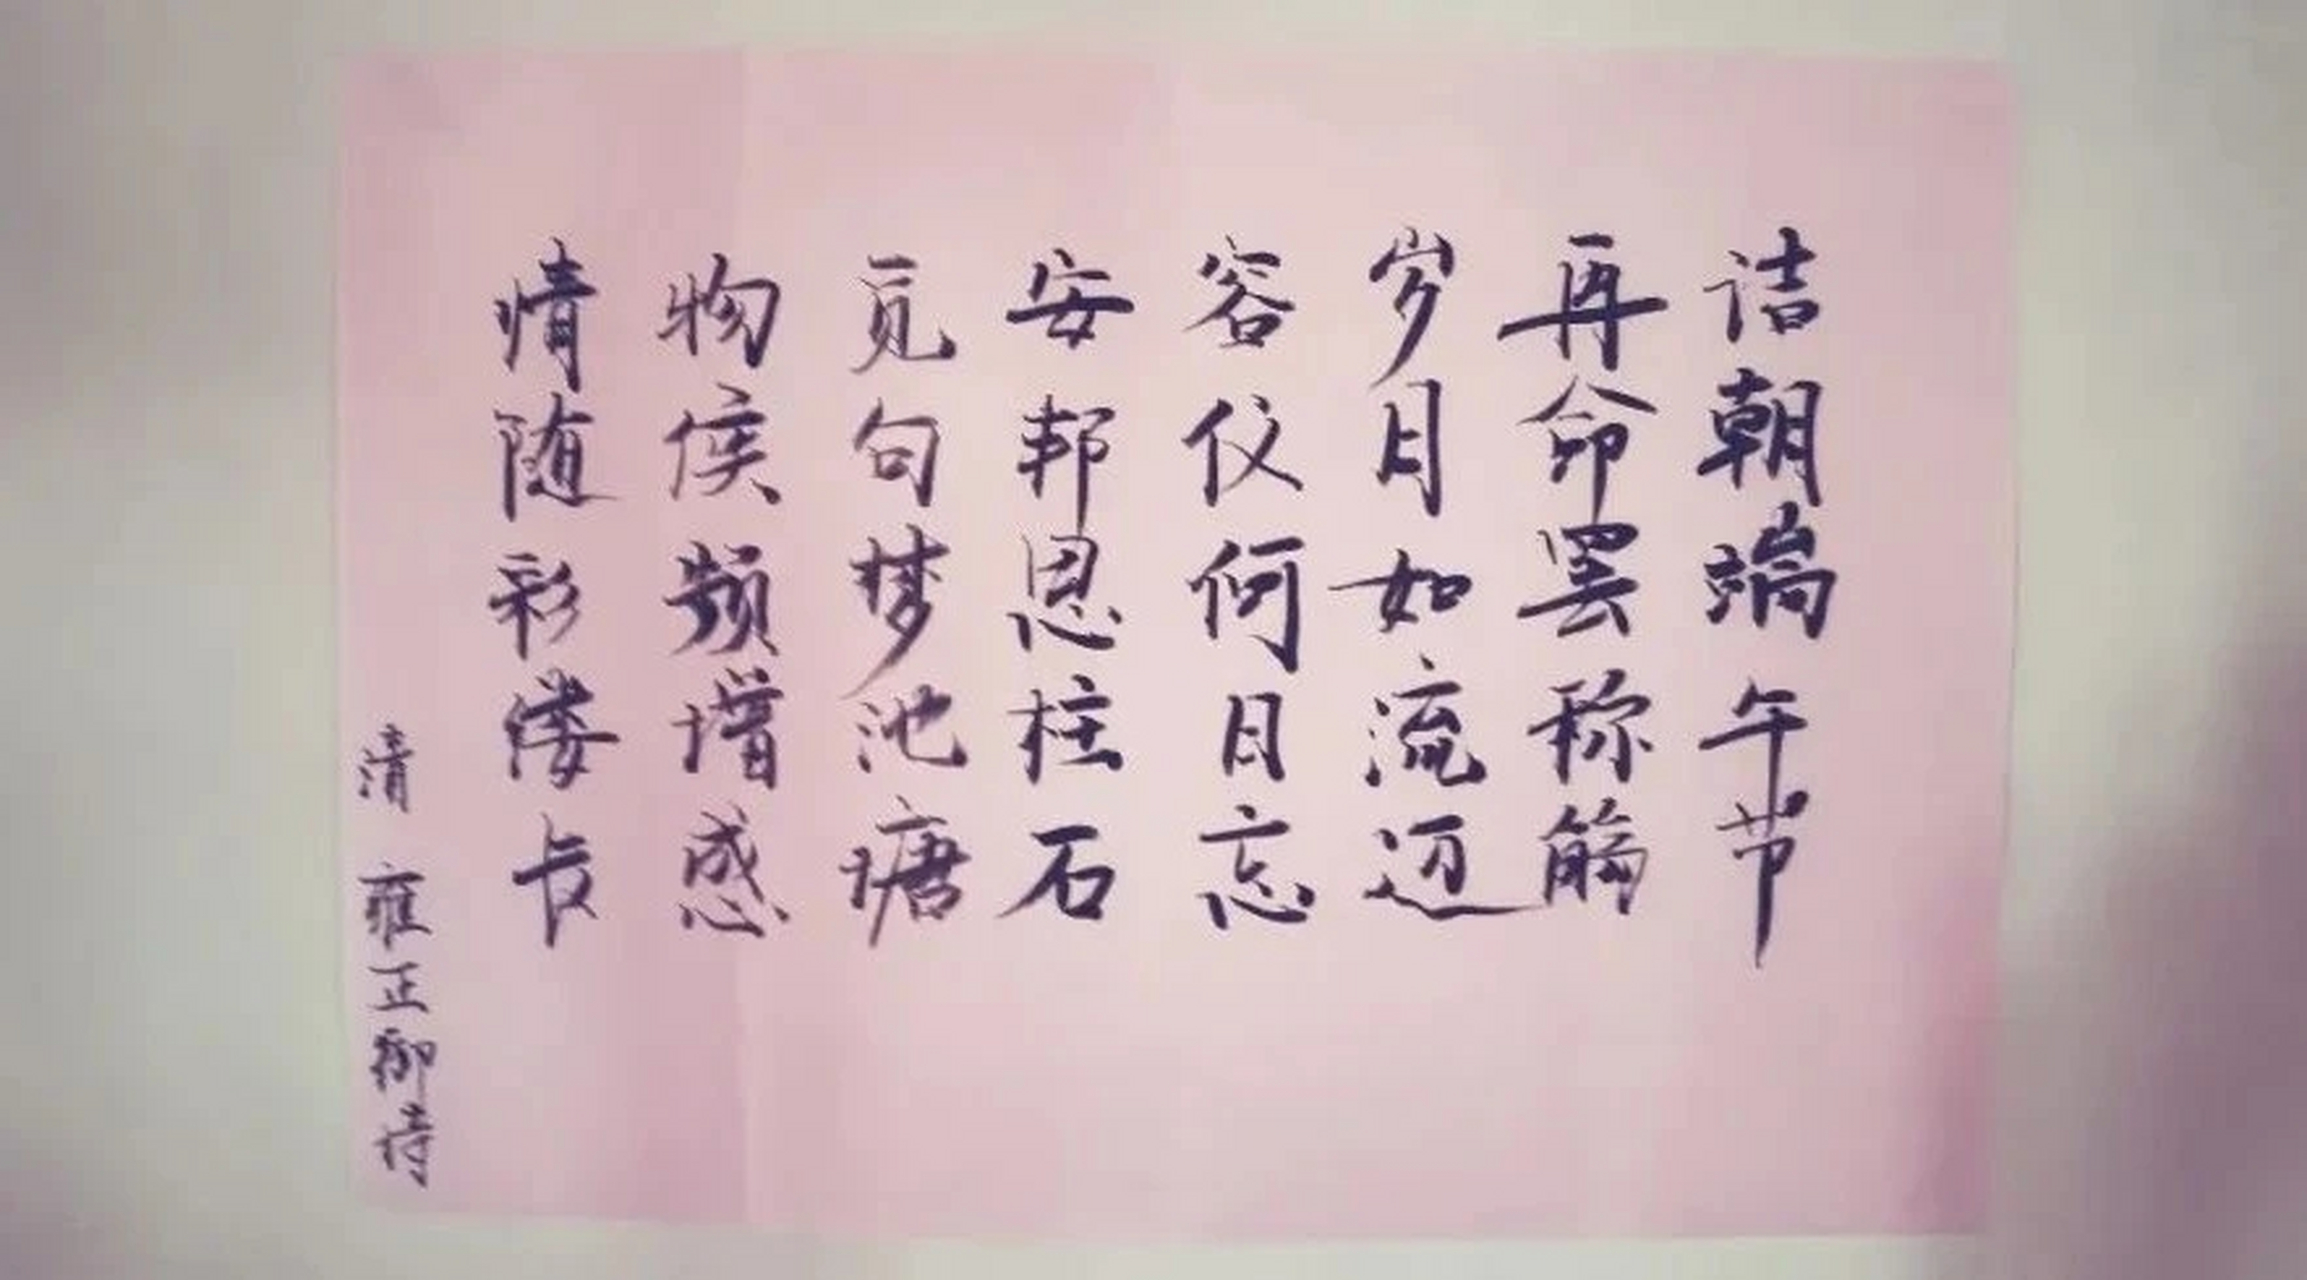 诘朝端午节
再命罢称觞
岁月如流迈
容仪何日忘
安邦恩柱石
觅句梦池塘
物侯频增感
情随彩缕长
清 雍正御诗